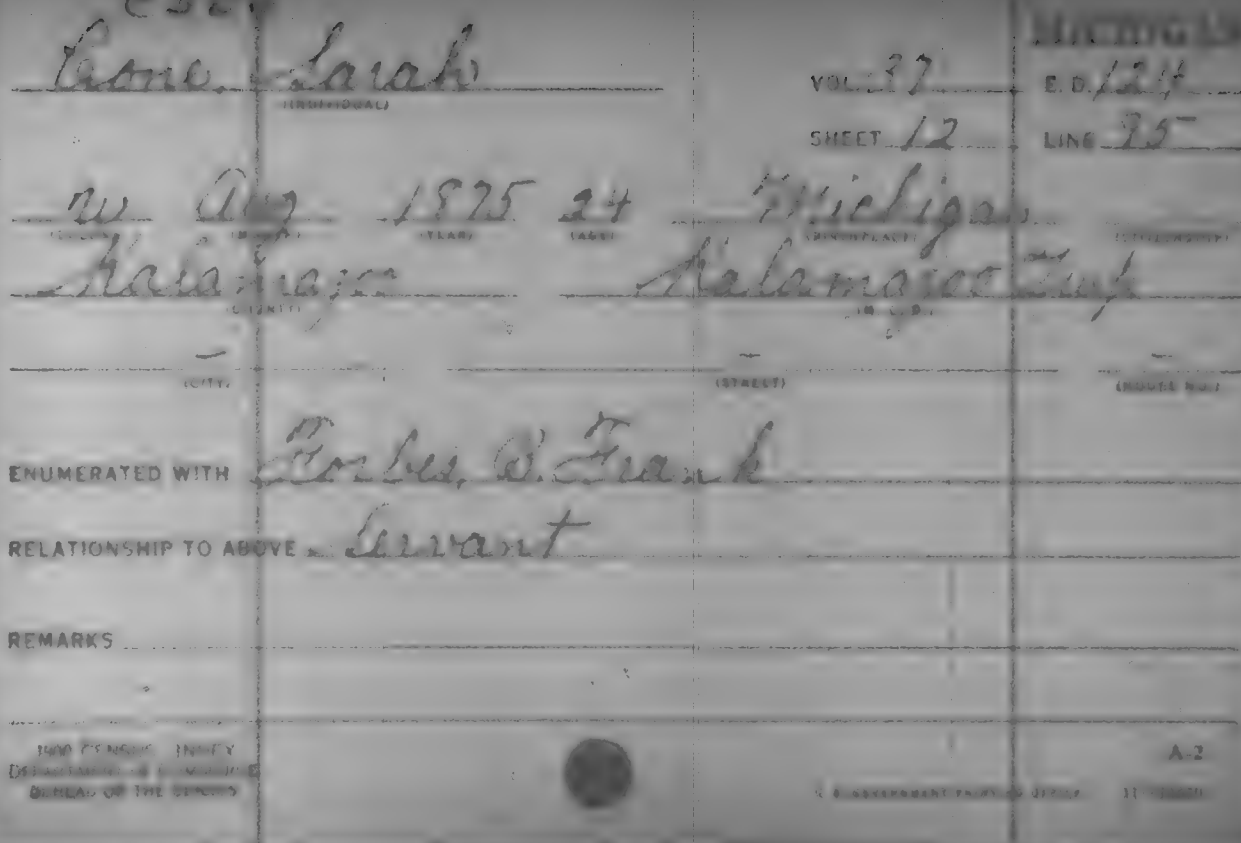 MICHIGAN
Sarah
(INDIVIDUAL)
VOL. 37 E. D. 124
SHEET 12 LINE 95
W Aug 1875 24 Michigan
(COLOR) (MONTH) (YEAR) (AGE) (BIRTHPLACE) (CITIZENSHIP)
Kalamazoo Kalamazoo Twp
(COUNTY) (M. C. D.)
– – –
(CITY) (STREET) (HOUSE NO.)
ENUMERATED WITH Forbes, B. Frank
RELATIONSHIP TO ABOVE Servant
REMARKS
1900 CENSUS INDEX
DEPARTMENT OF COMMERCE
BUREAU OF THE CENSUS
A-2
U. S. GOVERNMENT PRINTING OFFICE